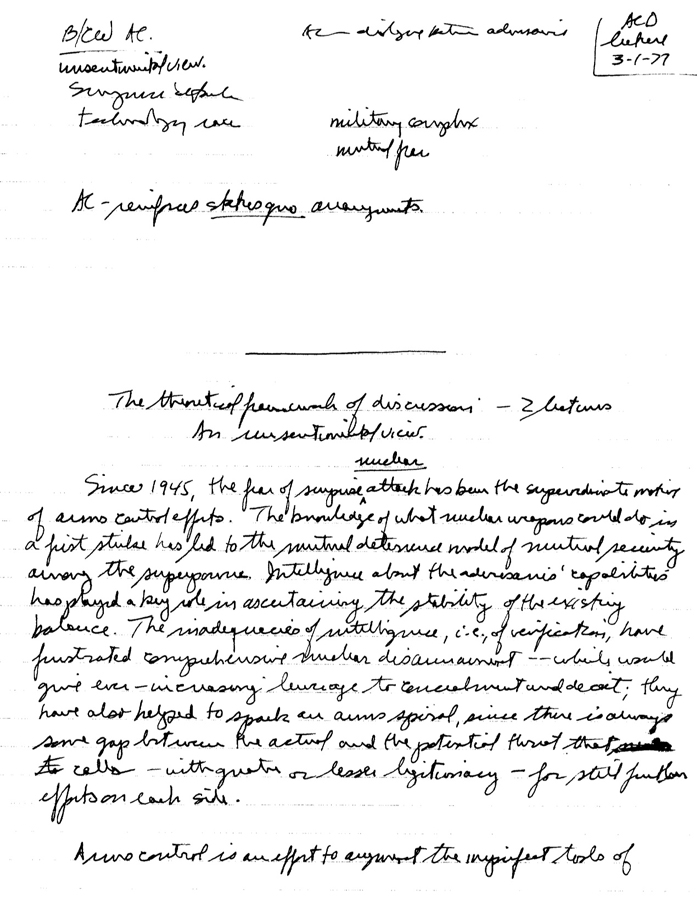 B/CW AC.
AC — dialogue between adversaries
ACD
lecture
3-1-77
unsentimental view.
Surprise
technology race
military complex
mutual fear
AC - reinforces status quo arrangements.
The theoretical framework of discussion — 2 lectures
An unsentimental view.
nuclear
Since 1945, the fear of surprise ^ attack has been the superordinate motive
of arms control efforts. The knowledge of what nuclear weapons could do in
a first strike has led to the mutual deterrence model of mutual security
among the superpowers. Intelligence about the adversaries' capabilities
has played a key role in ascertaining the stability of the existing
balance. The inadequacies of intelligence, i.e., of verification, have
frustrated comprehensive nuclear disarmament -- which would
give ever-increasing leverage to concealment and deceit; they
have also helped to spark an arms spiral, since there is always
some gap between the actual and the potential threat that
to calls - with greater or lesser legitimacy - for still further
efforts on each side.
Arms control is an effort to augment the imperfect tools of